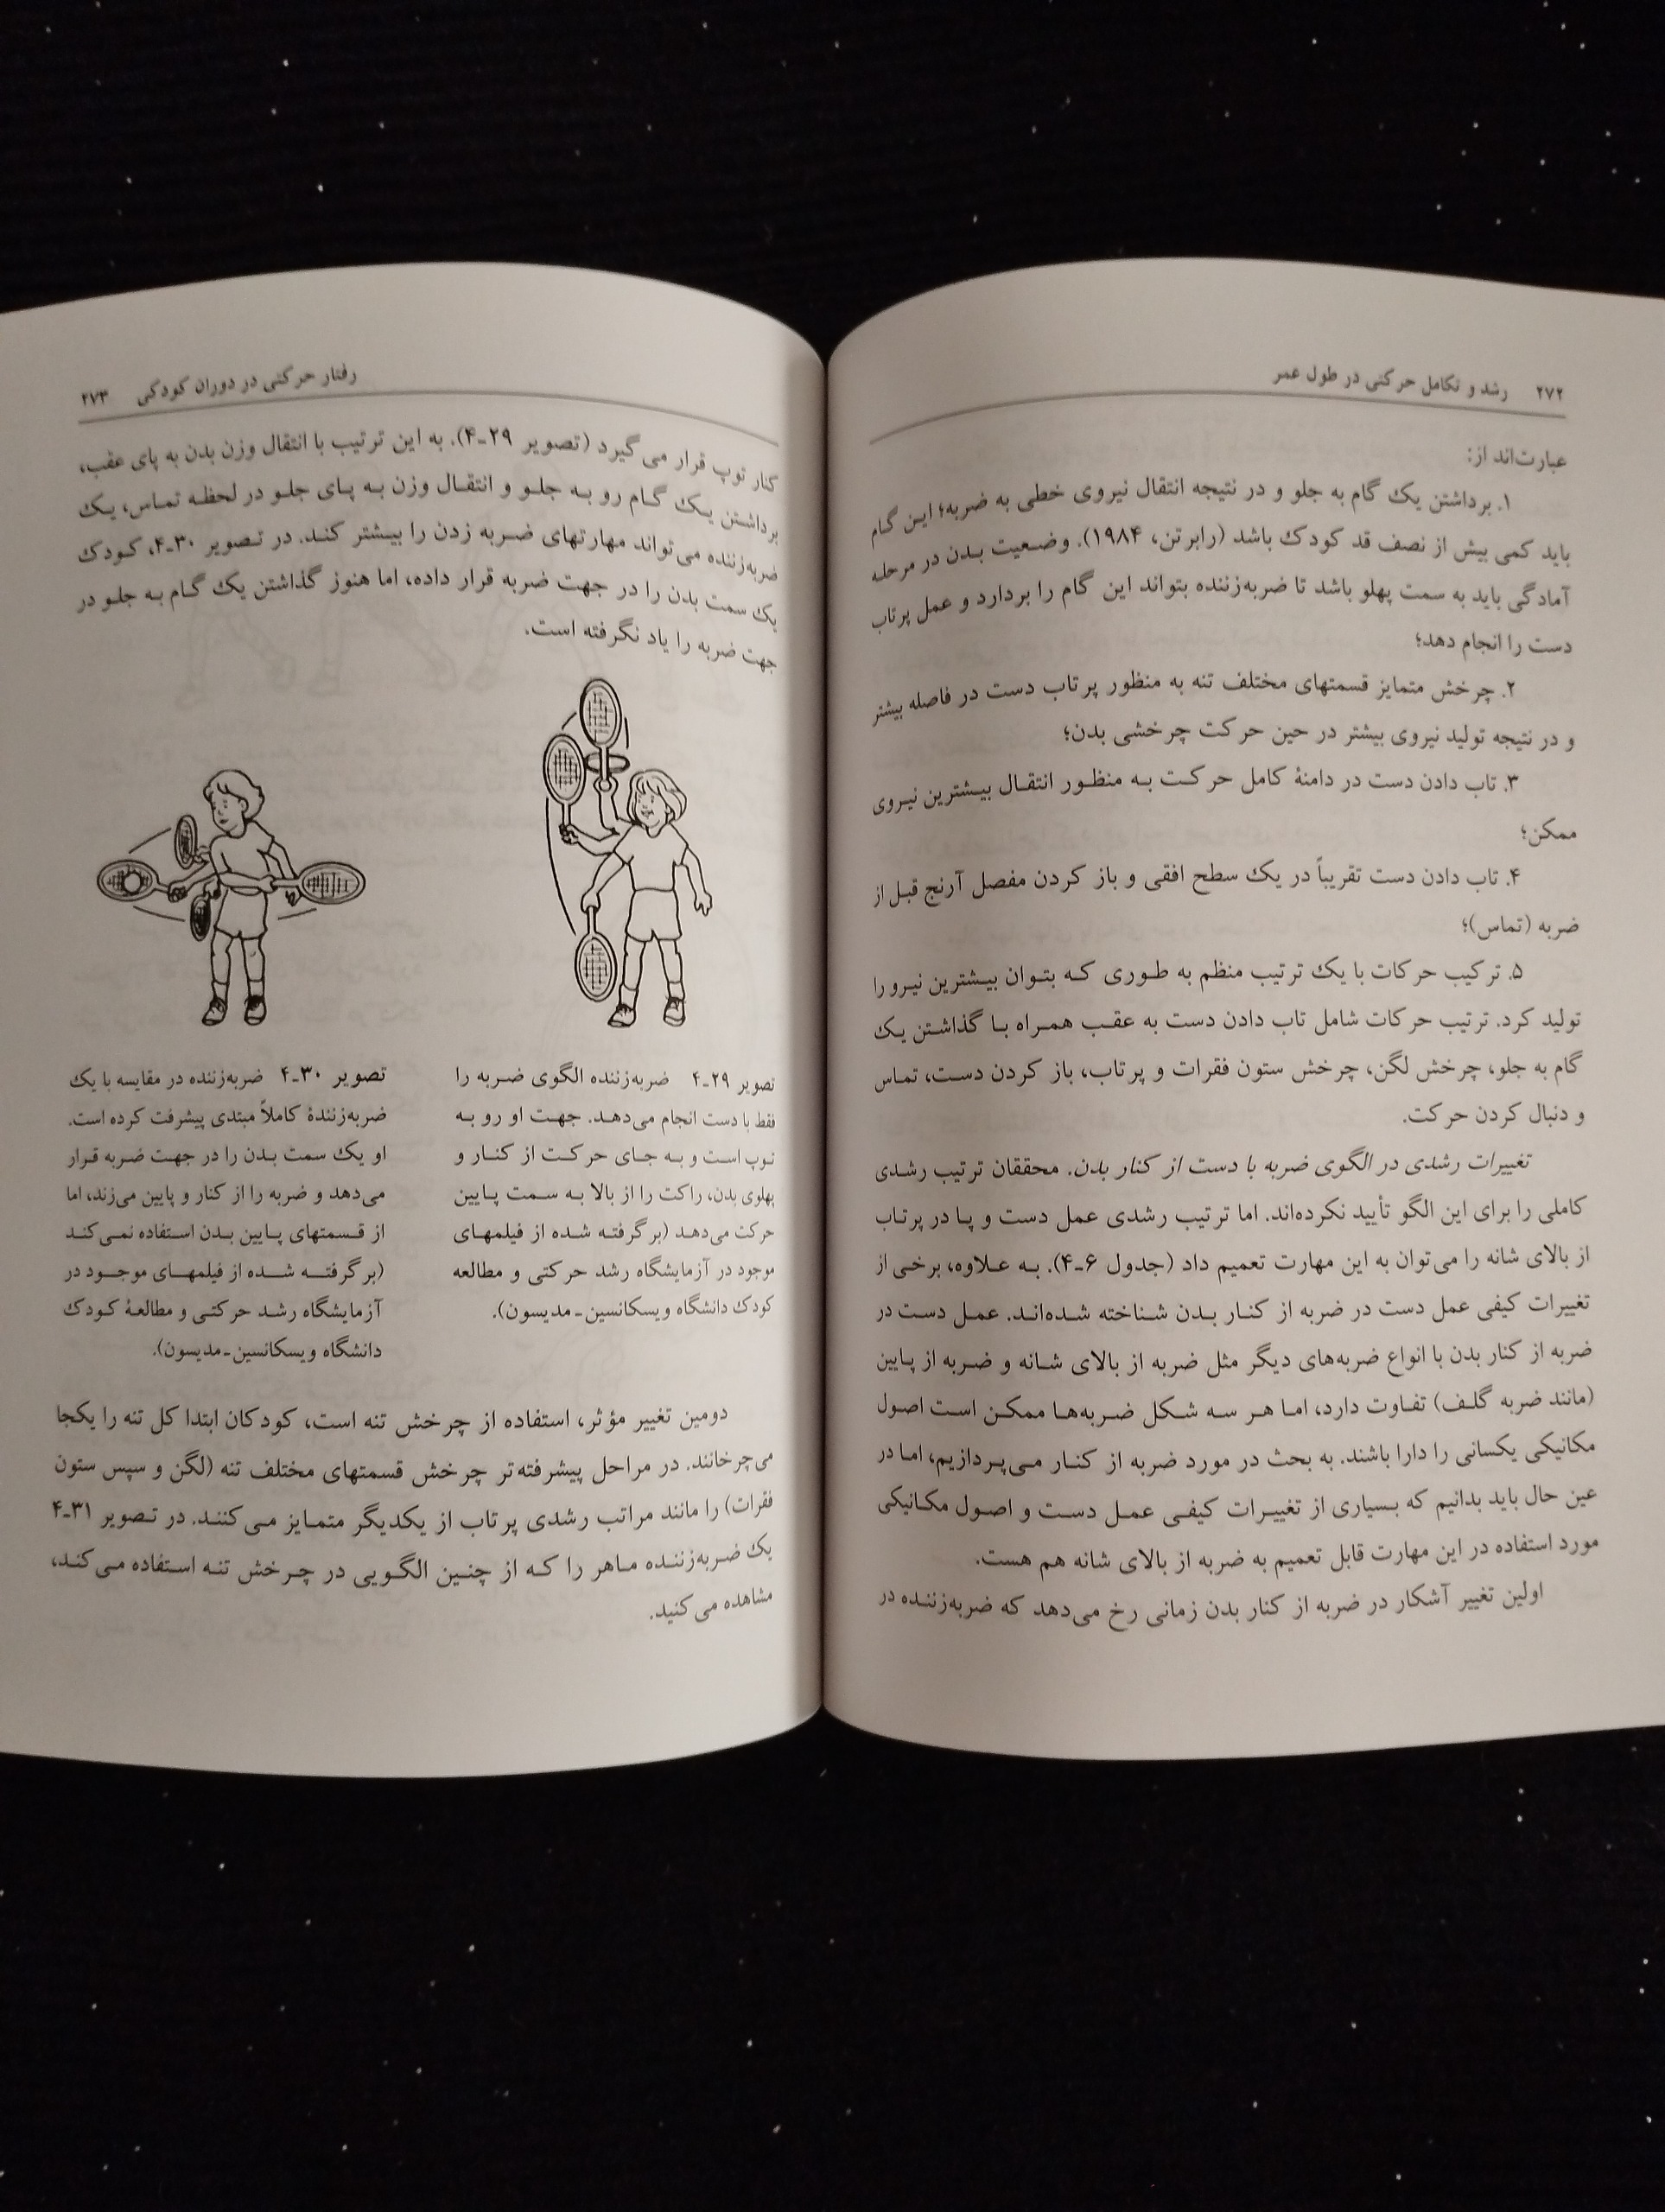 ۲۷۲ رشد و تکامل حرکتی در طول عمر
عبارت‌اند از:
۱. برداشتن یک گام به جلو و در نتیجه انتقال نیروی خطی به ضربه؛ این گام
باید کمی بیش از نصف قد کودک باشد (رابرتن، ۱۹۸۴). وضعیت بدن در مرحله
آمادگی باید به سمت پهلو باشد تا ضربه‌زننده بتواند این گام را بردارد و عمل پرتاب
دست را انجام دهد؛
۲. چرخش متمایز قسمتهای مختلف تنه به منظور پرتاب دست در فاصله بیشتر
و در نتیجه تولید نیروی بیشتر در حین حرکت چرخشی بدن؛
۳. تاب دادن دست در دامنۀ کامل حرکت به منظور انتقال بیشترین نیروی
ممکن؛
۴. تاب دادن دست تقریباً در یک سطح افقی و باز کردن مفصل آرنج قبل از
ضربه (تماس)؛
۵. ترکیب حرکات با یک ترتیب منظم به طوری که بتوان بیشترین نیرو را
تولید کرد. ترتیب حرکات شامل تاب دادن دست به عقب همراه با گذاشتن یک
گام به جلو، چرخش لگن، چرخش ستون فقرات و پرتاب، باز کردن دست، تماس
و دنبال کردن حرکت.
تغییرات رشدی در الگوی ضربه با دست از کنار بدن. محققان ترتیب رشدی
کاملی را برای این الگو تأیید نکرده‌اند. اما ترتیب رشدی عمل دست و پا در پرتاب
از بالای شانه را می‌توان به این مهارت تعمیم داد (جدول ۶ـ۴). به علاوه، برخی از
تغییرات کیفی عمل دست در ضربه از کنار بدن شناخته شده‌اند. عمل دست در
ضربه از کنار بدن با انواع ضربه‌های دیگر مثل ضربه از بالای شانه و ضربه از پایین
(مانند ضربه گلف) تفاوت دارد، اما هر سه شکل ضربه‌ها ممکن است اصول
مکانیکی یکسانی را دارا باشند. به بحث در مورد ضربه از کنار می‌پردازیم، اما در
عین حال باید بدانیم که بسیاری از تغییرات کیفی عمل دست و اصول مکانیکی
مورد استفاده در این مهارت قابل تعمیم به ضربه از بالای شانه هم هست.
اولین تغییر آشکار در ضربه از کنار بدن زمانی رخ می‌دهد که ضربه‌زننده در
رفتار حرکتی در دوران کودکی ۲۷۳
کنار توپ قرار می گیرد (تصویر ۲۹ـ۴). به این ترتیب با انتقال وزن بدن به پای عقب،
برداشتن یک گام رو به جلو و انتقال وزن به پای جلو در لحظه تماس، یک
ضربه‌زننده می‌تواند مهارتهای ضربه زدن را بیشتر کند. در تصویر ۳۰ـ۴، کودک
یک سمت بدن را در جهت ضربه قرار داده، اما هنوز گذاشتن یک گام به جلو در
جهت ضربه را یاد نگرفته است.
تصویر ۲۹ـ۴ ضربه‌زننده الگوی ضربه را
فقط با دست انجام می‌دهد. جهت او رو به
توپ است و به جای حرکت از کنار و
پهلوی بدن، راکت را از بالا به سمت پایین
حرکت می‌دهد (بر گرفته شده از فیلمهای
موجود در آزمایشگاه رشد حرکتی و مطالعه
کودک دانشگاه ویسکانسین ـ مدیسون).
تصویر ۳۰ـ۴ ضربه‌زننده در مقایسه با یک
ضربه‌زنندۀ کاملاً مبتدی پیشرفت کرده است.
او یک سمت بدن را در جهت ضربه قرار
می‌دهد و ضربه را از کنار و پایین می‌زند، اما
از قسمتهای پایین بدن استفاده نمی‌کند
(بر گرفته شده از فیلمهای موجود در
آزمایشگاه رشد حرکتی و مطالعۀ کودک
دانشگاه ویسکانسین ـ مدیسون).
دومین تغییر مؤثر، استفاده از چرخش تنه است، کودکان ابتدا کل تنه را یکجا
می‌چرخانند. در مراحل پیشرفته‌تر چرخش قسمتهای مختلف تنه (لگن و سپس ستون
فقرات) را مانند مراتب رشدی پرتاب از یکدیگر متمایز می‌کنند. در تصویر ۳۱ـ۴
یک ضربه‌زننده ماهر را که از چنین الگویی در چرخش تنه استفاده می‌کند،
مشاهده می‌کنید.